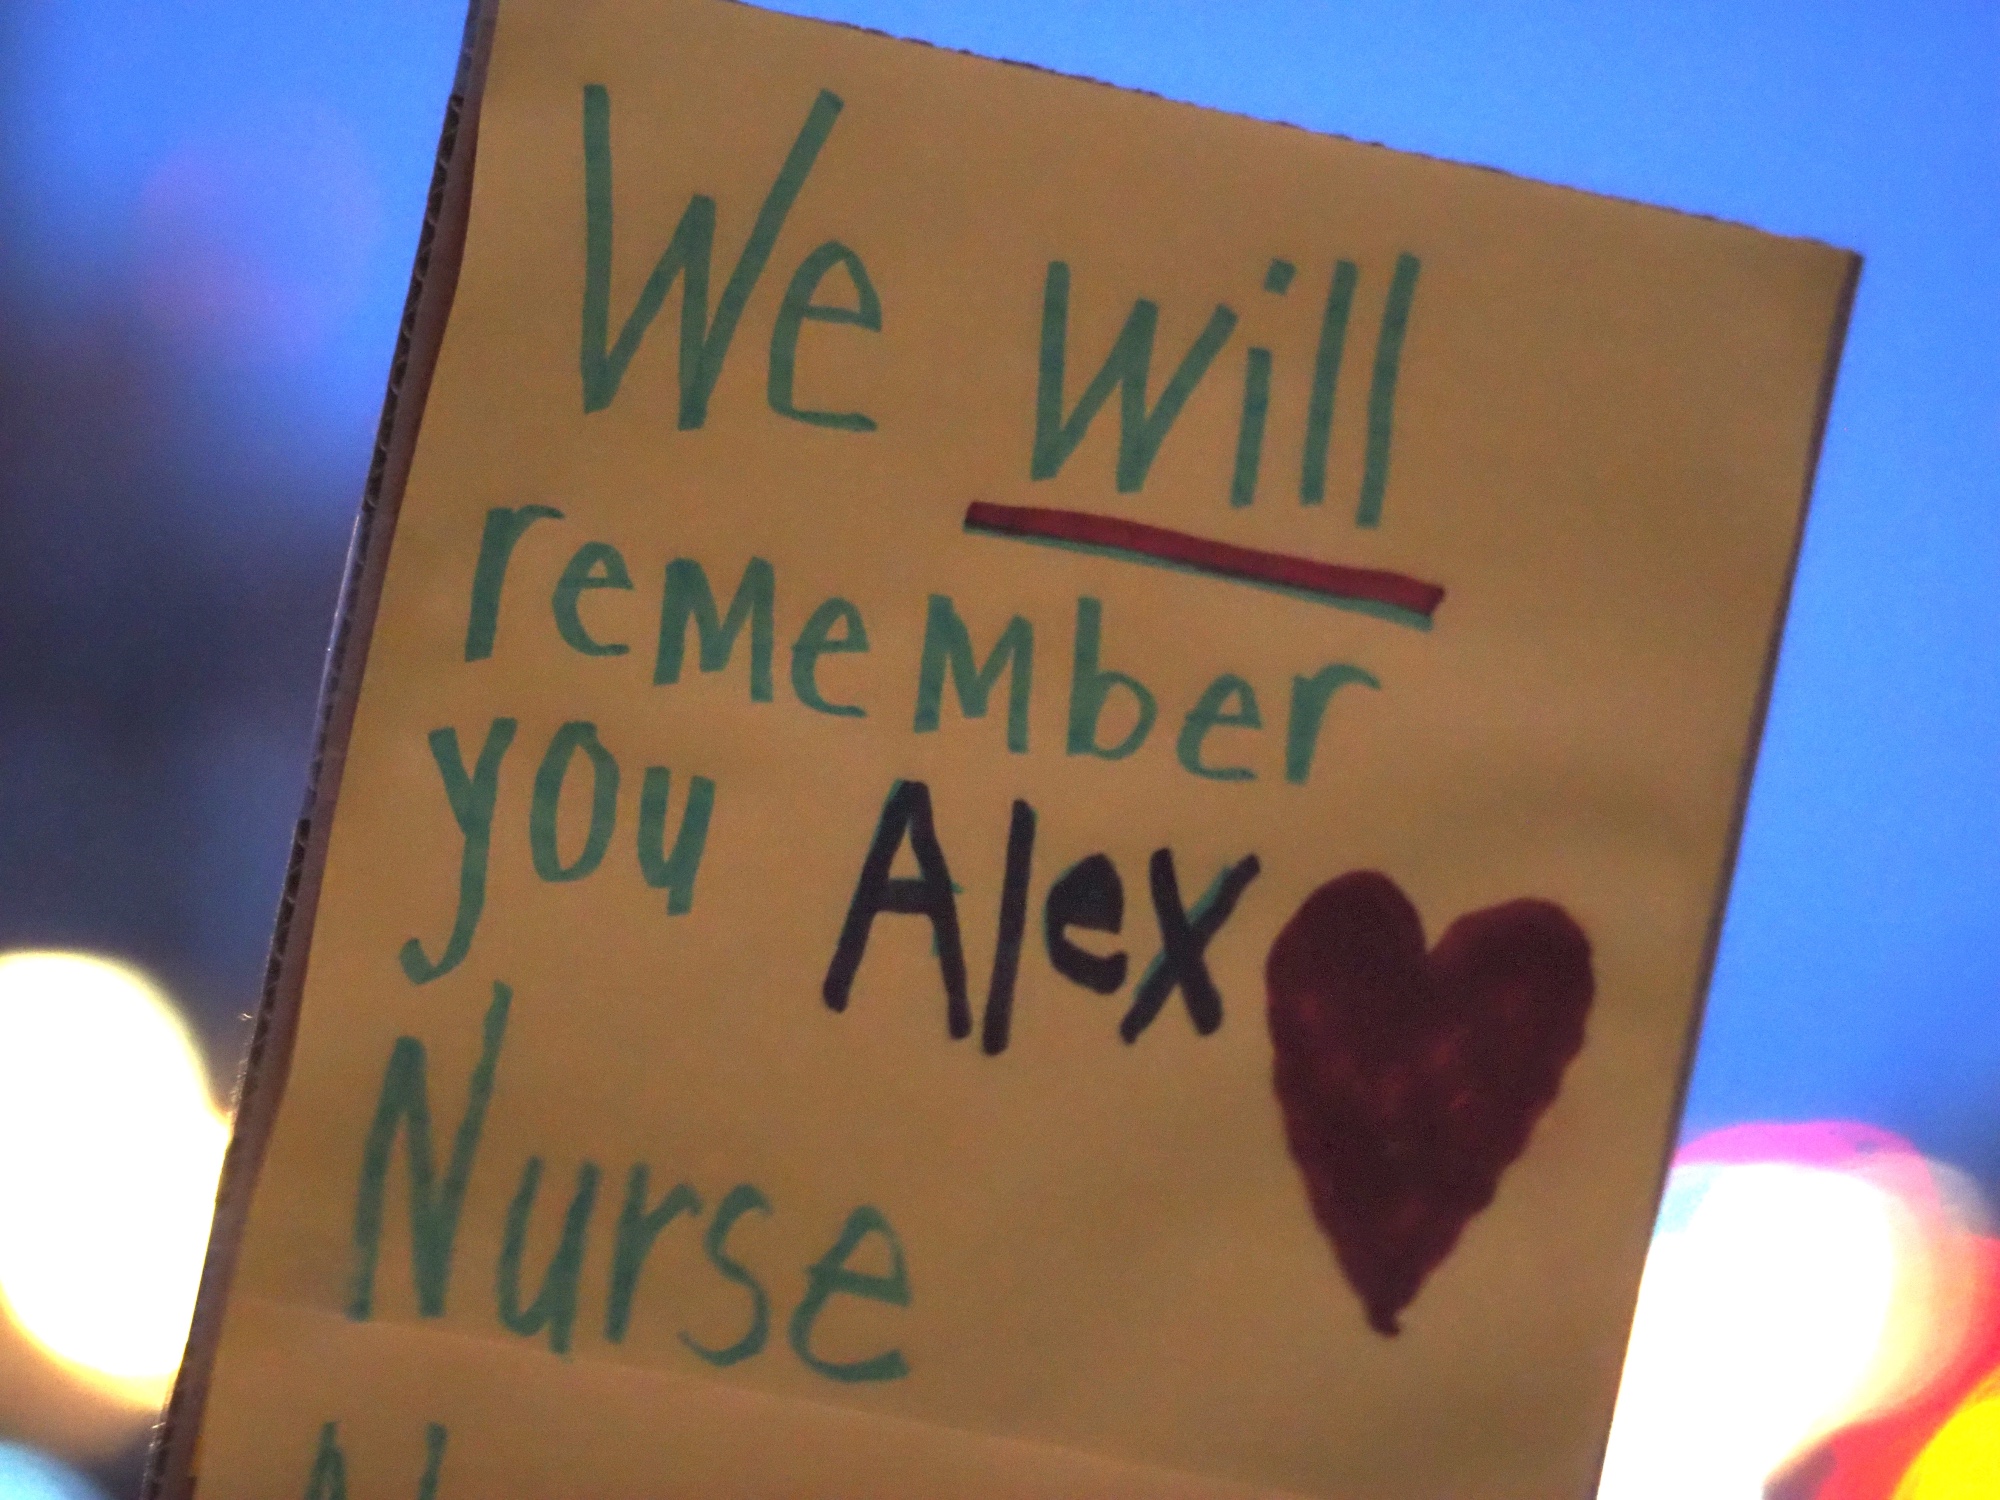 We will
remember
you Alex
Nurse